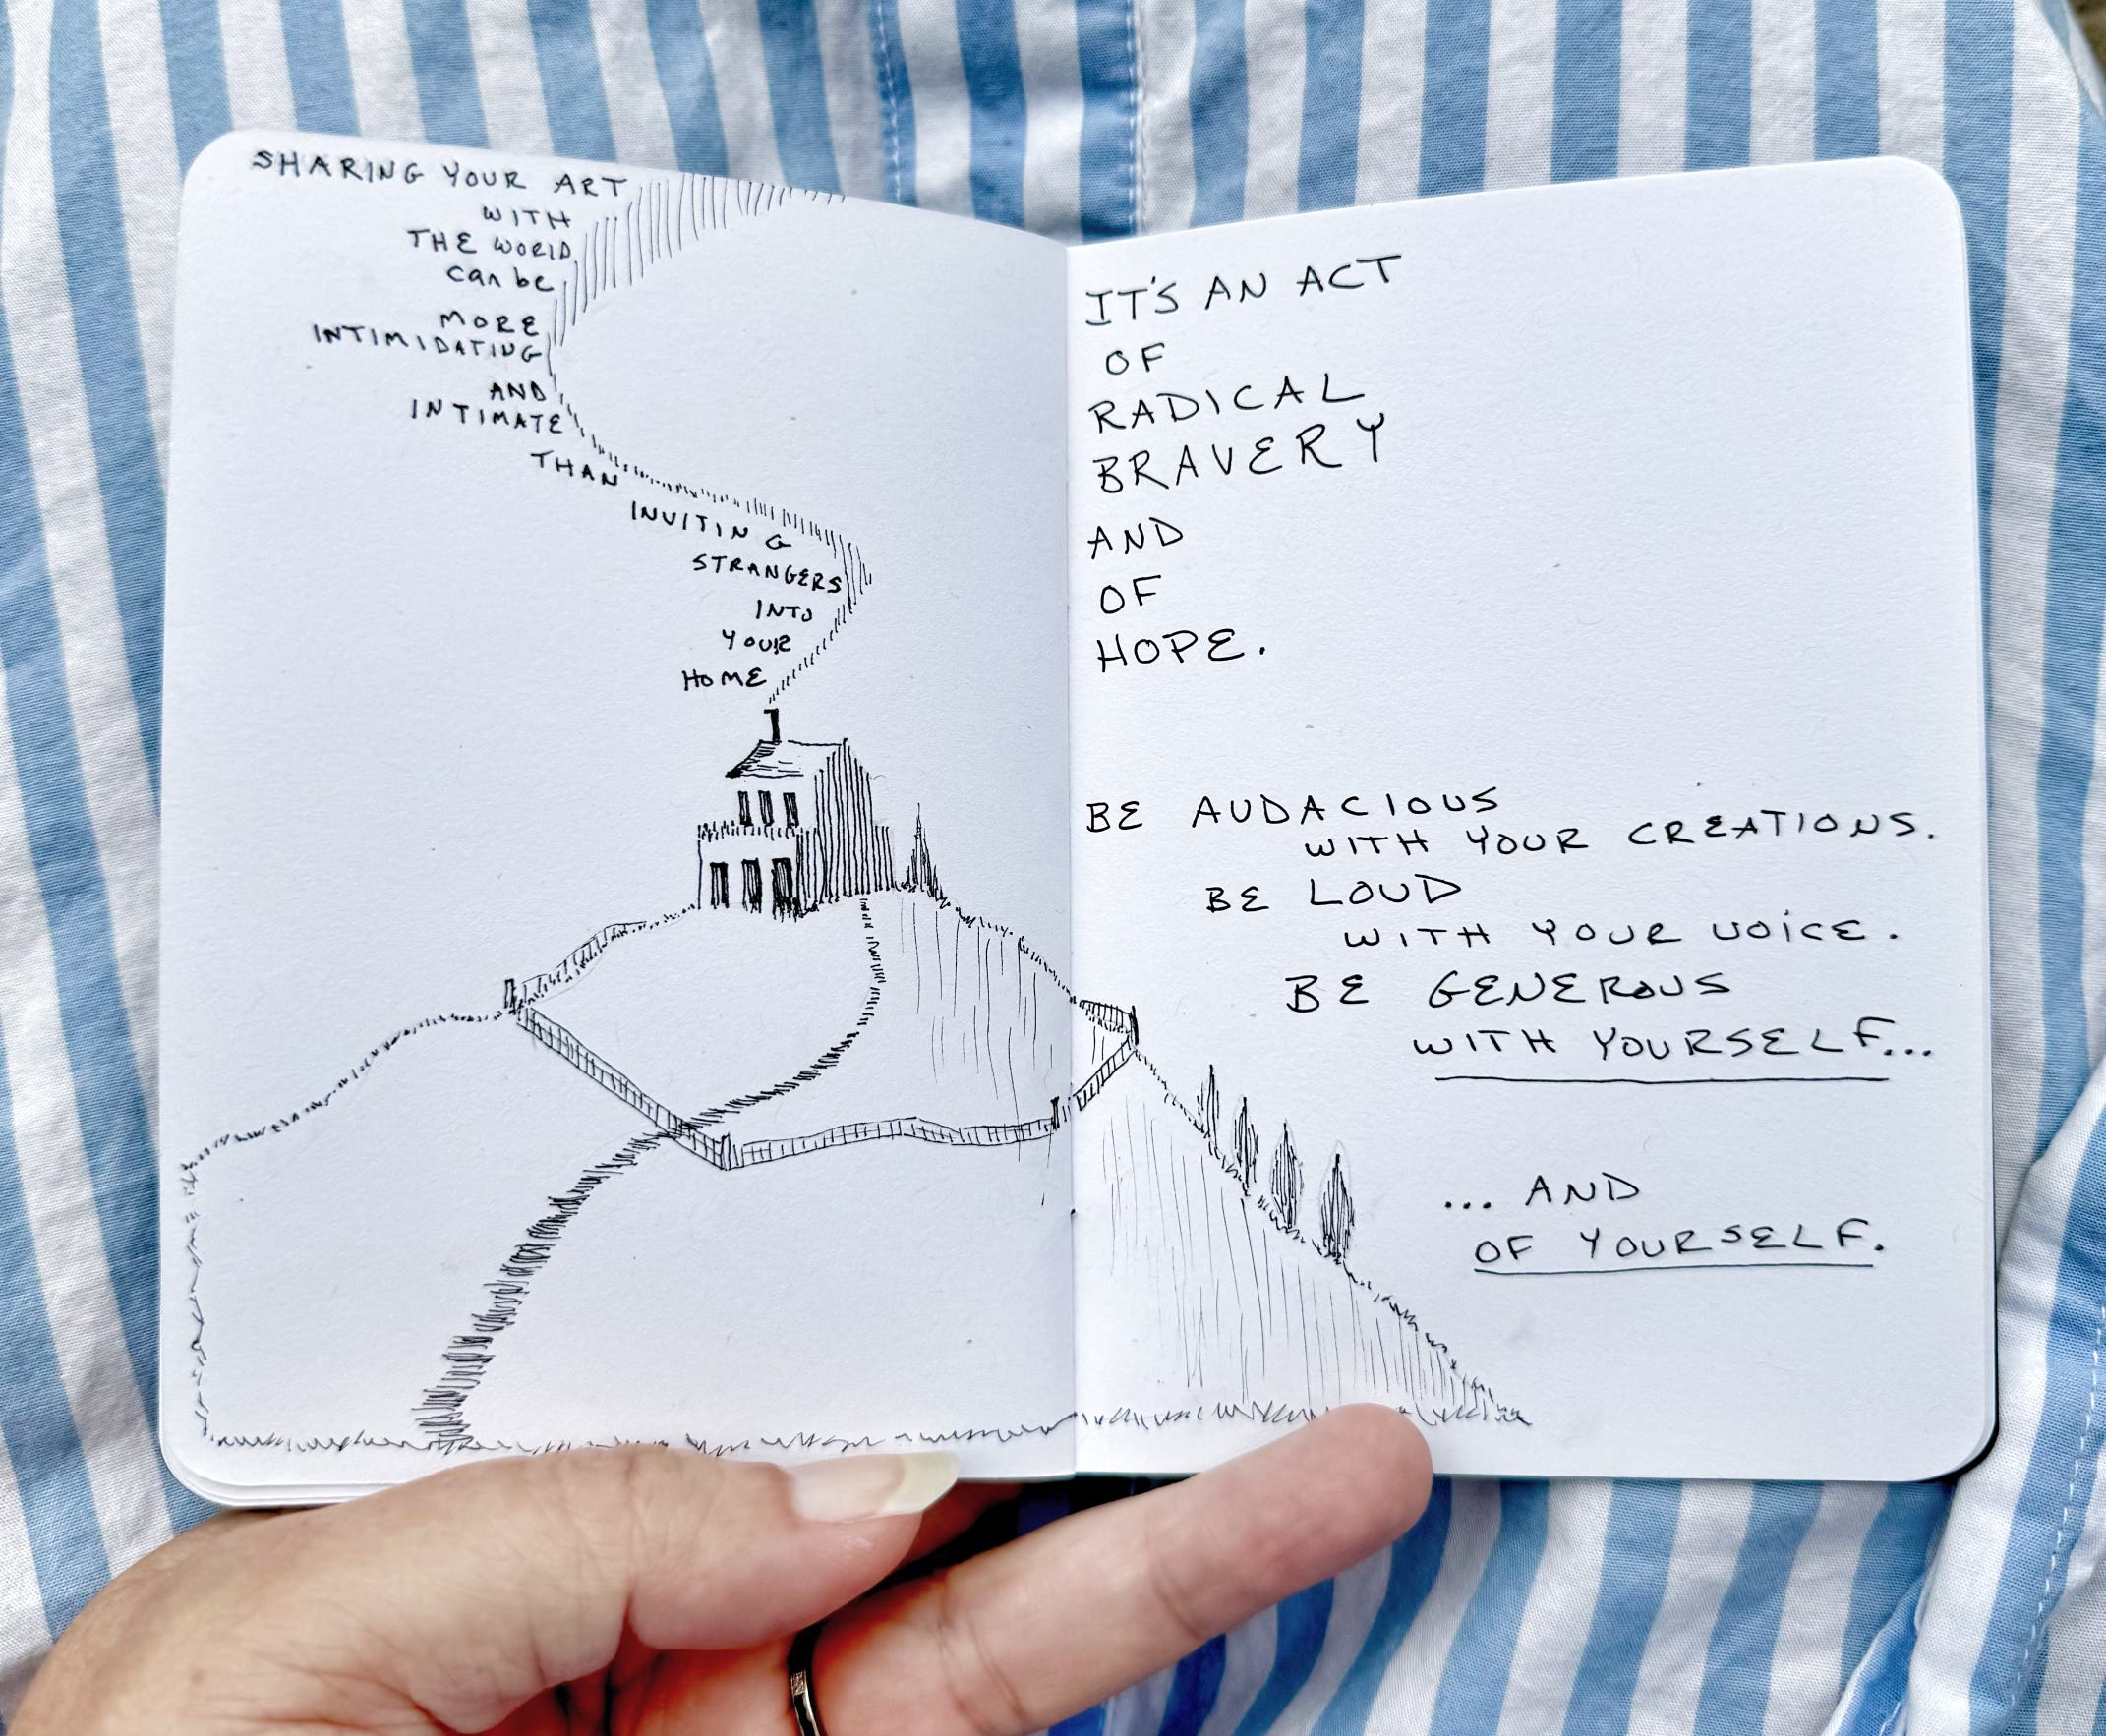 SHARING YOUR ART
WITH
THE WORLD
can be
MORE
INTIMIDATING
AND
INTIMATE
THAN
INVITING
STRANGERS
INTO
YOUR
HOME
IT'S AN ACT
OF
RADICAL
BRAVERY
AND
OF
HOPE.
BE AUDACIOUS
WITH YOUR CREATIONS.
BE LOUD
WITH YOUR VOICE.
BE GENEROUS
WITH YOURSELF...
... AND
OF YOURSELF.